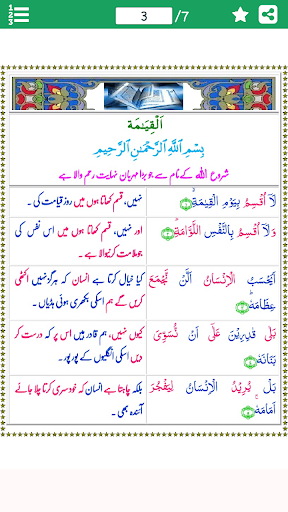 1
2
3
3
/7
اَلْقِيٰمَة
بِسْمِ اللّٰهِ الرَّحْمٰنِ الرَّحِيْمِ
شروع اللہ کے نام سے جو بڑا مہربان نہایت رحم والا ہے
لَآ اُقْسِمُ بِيَوْمِ الْقِيٰمَةِۙ
نہیں، قسم کھاتا ہوں میں روز قیامت کی ۔
وَلَآ اُقْسِمُ بِالنَّفْسِ اللَّوَّامَةِؕ
اور نہیں، قسم کھاتا ہوں میں اس نفس کی
جو ملامت کرنیوالا ہے ۔
اَيَحْسَبُ الْاِنْسَانُ اَلَّنْ نَّجْمَعَ
عِظَامَهٗؕ
کیا خیال کرتا ہے انسان کہ ہرگز نہیں اکٹھی
کریں گے ہم اسکی بکھری ہوئی ہڈیاں ۔
بَلٰى قٰدِرِيْنَ عَلٰٓى اَنْ نُّسَوِّىَ
بَنَانَهٗ
کیوں نہیں، ہم قادر ہیں اس پر کہ درست کر
دیں اسکی انگلیوں کے پور پور ۔
بَلْ يُرِيْدُ الْاِنْسَانُ لِيَفْجُرَ
اَمَامَهٗۚ
بلکہ چاہتا ہے انسان کہ خود سری کرتا چلا جائے
آئندہ بھی ۔